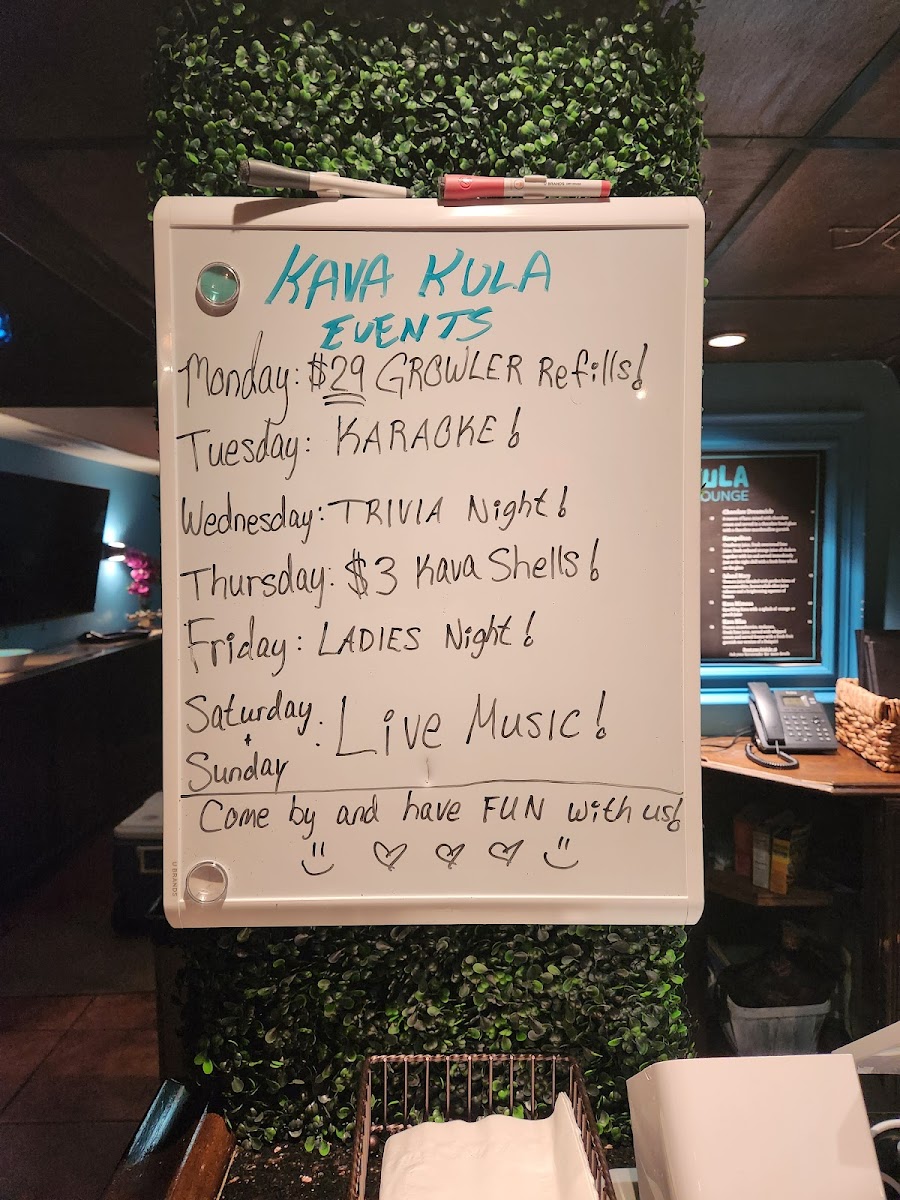 KAVA KULA
EVENTS
Monday: $29 GROWLER Refills!
Tuesday: KARAOKE!
Wednesday: TRIVIA Night!
Thursday: $3 Kava Shells!
Friday: LADIES Night!
Saturday
+
Sunday : Live Music!
Come by and have FUN with us!
U BRANDS
KULA
LOUNGE